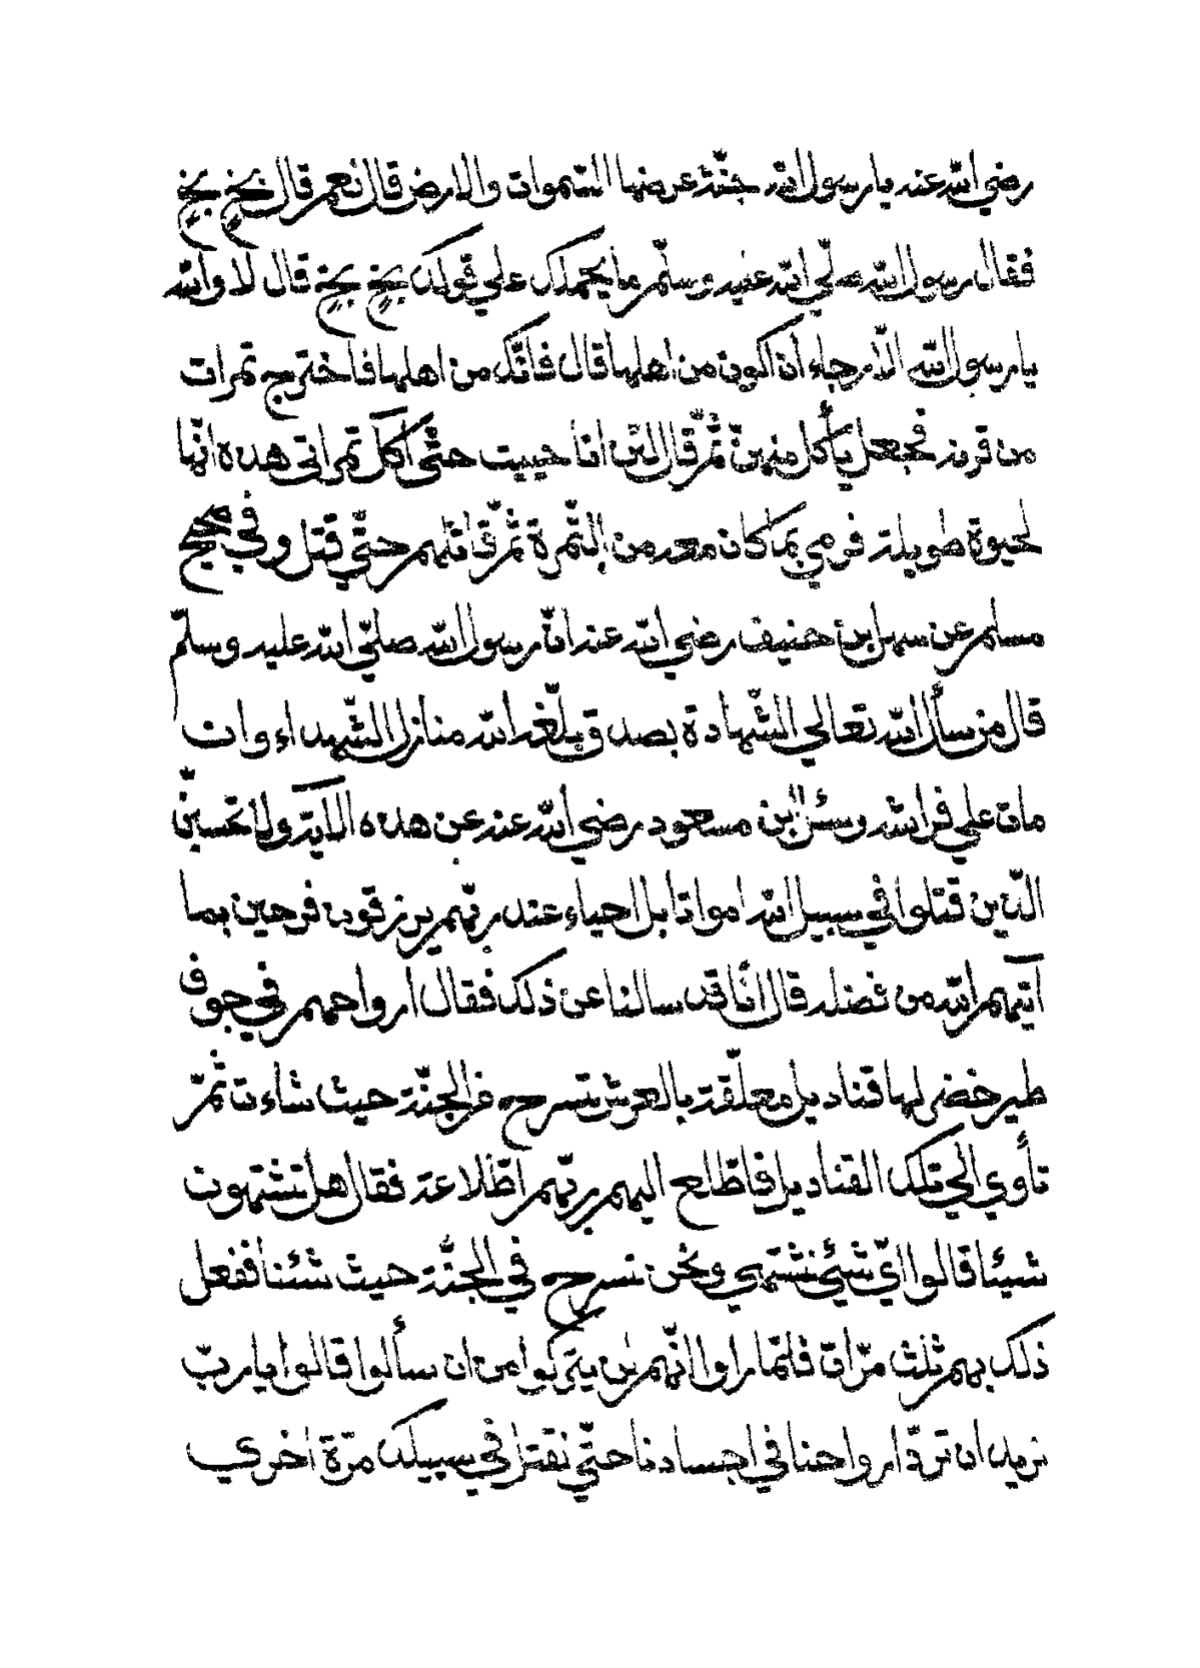 رضي الله عنه يا رسول الله جنّة عرضها السّموات والارض قال نعم قال بخٍ بخٍ
فقال رسول الله صلّي الله عليه وسلّم ما يحملك علي قولك بخٍ بخٍ قال لا والله
يا رسول الله الّا رجاء ان اكون من اهلها قال فانّك من اهلها فاخترج تمرات
من قرنه فجعل يأكل منهنّ ثمّ قال لئن انا حييت حتّي آكل تمراتي هذه انّها
لحيوة طويلة فرمي بما كان معه من التّمرة ثمّ قاتلهم حتّي قتل وفي صحيح
مسلم عن سهل بن حنيف رضي الله عنه انّ رسول الله صلّي الله عليه وسلّم
قال من سأل الله تعالي الشّهادة بصدق بلّغه الله منازل الشّهداء وان
مات علي فراشه وسئل ابن مسعود رضي الله عنه عن هذه الآية ولا تحسبنّ
الّذين قتلوا في سبيل الله امواتا بل احياء عند ربّهم يرزقون فرحين بما
آتيهم الله من فضله قال انّا قد سالنا عن ذلك فقال ارواحهم في جوف
طير خضر لها قناديل معلّقة بالعرش تسرح في الجنّة حيث شاءت ثمّ
تأوي الي تلك القناديل فاطّلع اليهم ربّهم اطّلاعة فقال هل تشتهون
شيئا قالوا ايّ شئي نشتهي ونحن نسرح في الجنّة حيث شئنا ففعل
ذلك بهم ثلث مرّات فلمّا راوا انّهم لن يتركوا من ان سألوا قالوا يا ربّ
نريد ان تردّ ارواحنا في اجسادنا حتّي نقتل في سبيلك مرّة اخري